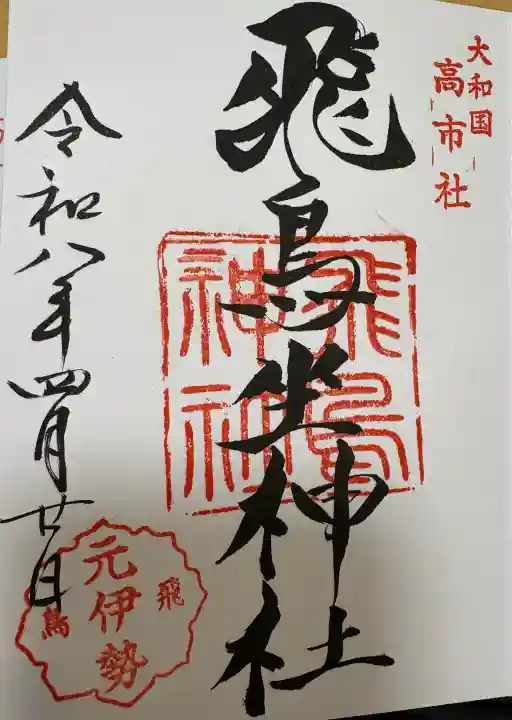 大和国
高市社
飛鳥坐神社
飛鳥
神社
令和八年四月廿日
元伊勢
飛
鳥